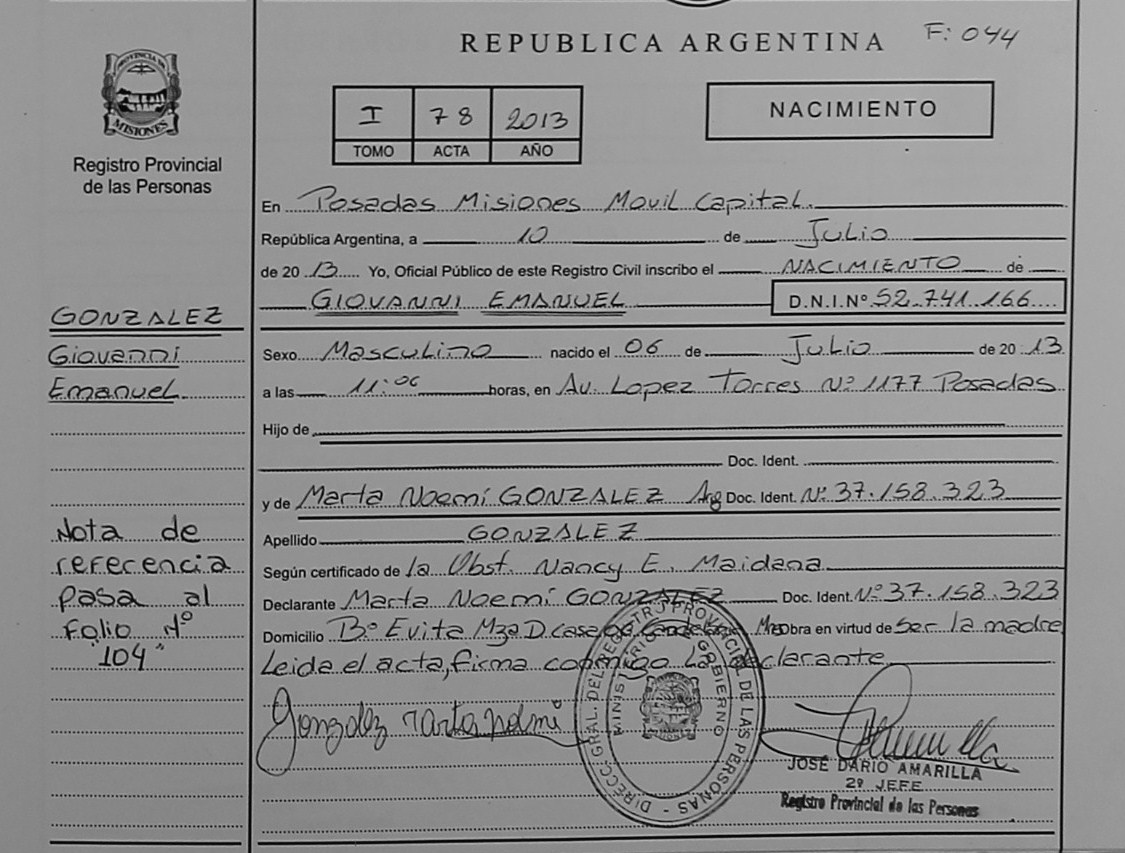 REPUBLICA ARGENTINA F: 044
PROVINCIA DE
MISIONES
Registro Provincial
de las Personas
I 78 2013
TOMO ACTA AÑO
NACIMIENTO
En Posadas Misiones Movil Capital.
República Argentina, a 10 de Julio
de 20 13 Yo, Oficial Público de este Registro Civil inscribo el NACIMIENTO de
GIOVANNI EMANUEL D.N.I.Nº 52.741.166
Sexo Masculino nacido el 06 de Julio de 20 13
a las 11:06 horas, en Av. Lopez Torres Nº 1177 Posadas
Hijo de
Doc. Ident.
y de Marta Noemí GONZALEZ Arg Doc. Ident. Nº 37.158.323
Apellido GONZALEZ
Según certificado de la Obst. Nancy E. Maidana
Declarante Marta Noemí GONZALEZ Doc. Ident. Nº 37.158.323
Domicilio Bº Evita Mza D. casa Candelaria Mnes Obra en virtud de Ser la madre
Leida el acta, firma conmigo La declarante
GONZALEZ
Giovanni
Emanuel
Nota de
referencia
pasa al
Folio Nº
"104"
Gonzalez Marta Noemi
DIRECC. GRAL. DEL REGISTRO PROVINCIAL DE LAS PERSONAS
MINISTERIO GOBIERNO
JOSÉ DARIO AMARILLA
2º JEFE
Registro Provincial de las Personas